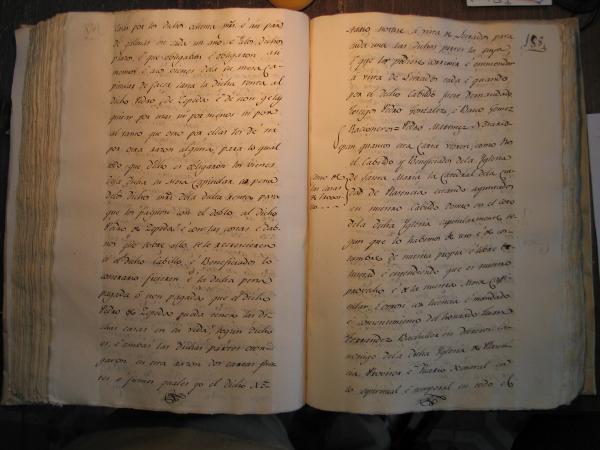 dichas por los dichos
de gallinas en cada un año é a los dichos
plazos, é por obligados é obligaron an
nomine, é sus vienes é dela su mesa Ca-
pitular de facer sana la dicha renta al
dicho Pedro de Zepeda é de non ge la
quitar por mas nin por menos nin por
al tanto que otro por ellas les dé nin
por otra razon alguna, para lo qual
todo que dicho es obligaron los vienes
dela dicha su Mesa Capitular so pena
delos dichos mrs. dela dicha renta para
que los paguen con el doblo al dicho
Pedro de Zepeda é con las costas é dab-
nos que sobre ello se le acrecentaren
si el dicho Cabildo, é Beneficiados lo
contrario ficieren é la dicha pena
pagada ó non pagada que el dicho
Pedro de Zepeda pueda tener las di-
chas casas en su vida segun dicho
es, é ambas las dichas partes otor-
garon en esta razon dos cartas fuer-
tes é firmes quales yo el dicho No-
185
tario notase á vista de Letrados para
cada una las dichas partes la suya,
é que los pudiese corregir é enmendar
á vista de Letrado cada é quando
por el dicho Cabildo fuere demandado
testigos Pedro Gonzalez, é Blasco Gomez
Racioneros= Pedro Martinez Notario
Sepan quantos esta Carta vieren, como Nos
el Cabildo y Beneficiados dela Yglesia
de Santa Maria la Catedral dela Ciu-
dad de Plasencia estando ayuntados
en nuestro Cabildo dentro en el coro
dela dicha Yglesia capitularmente se-
gun que lo habemos de uso é de cos-
tumbre, de nuestra propia é libre vo-
luntad é entendiendo que es nuestro
provecho é de la nuestra Mesa Capi-
tular, é otrosi con licencia é mandado
é consentimiento del honrado
Fernandez Bachiller en Decretos Ca-
nonigo dela dicha Yglesia de Plasen-
cia Provisor é Vicario General en
lo espiritual é temporal en todo el
Censo de
las casas